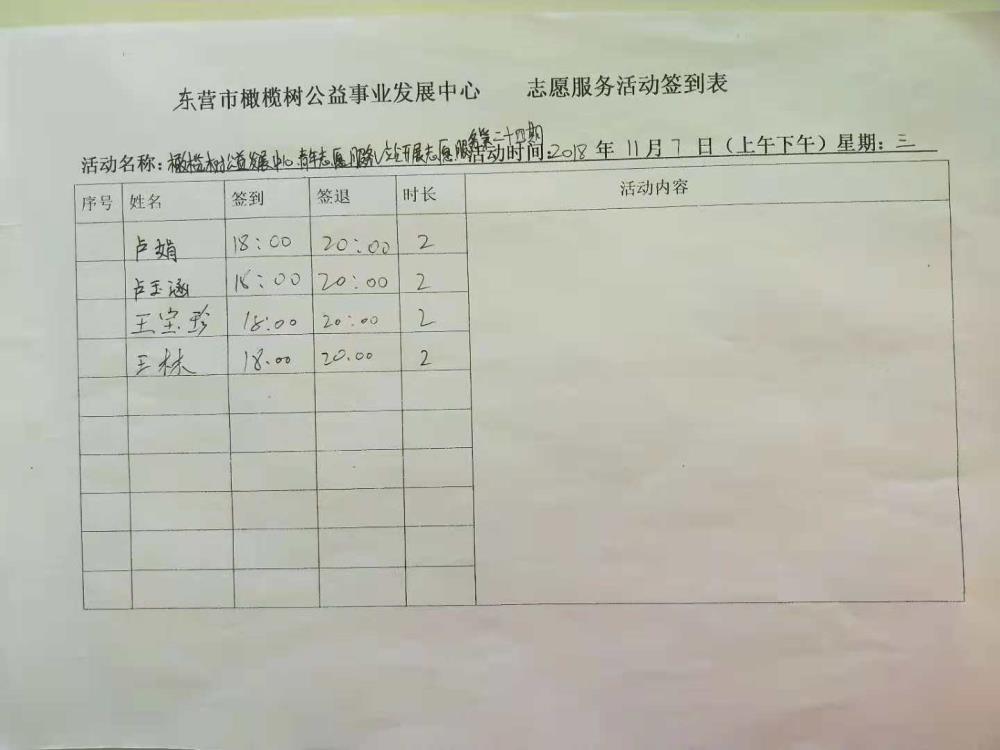 东营市橄榄树公益事业发展中心 志愿服务活动签到表
务第二十四期
活动名称：橄榄树公益发展中心青年志愿服务V站开展志愿服 活动时间：2018 年 11 月 7 日（上午下午）星期：三
序号 姓名 签到 签退 时长 活动内容
卢娟 18:00 20:00 2
卢玉涵 18:00 20:00 2
王宝珍 18:00 20:00 2
王林 18.00 20.00 2